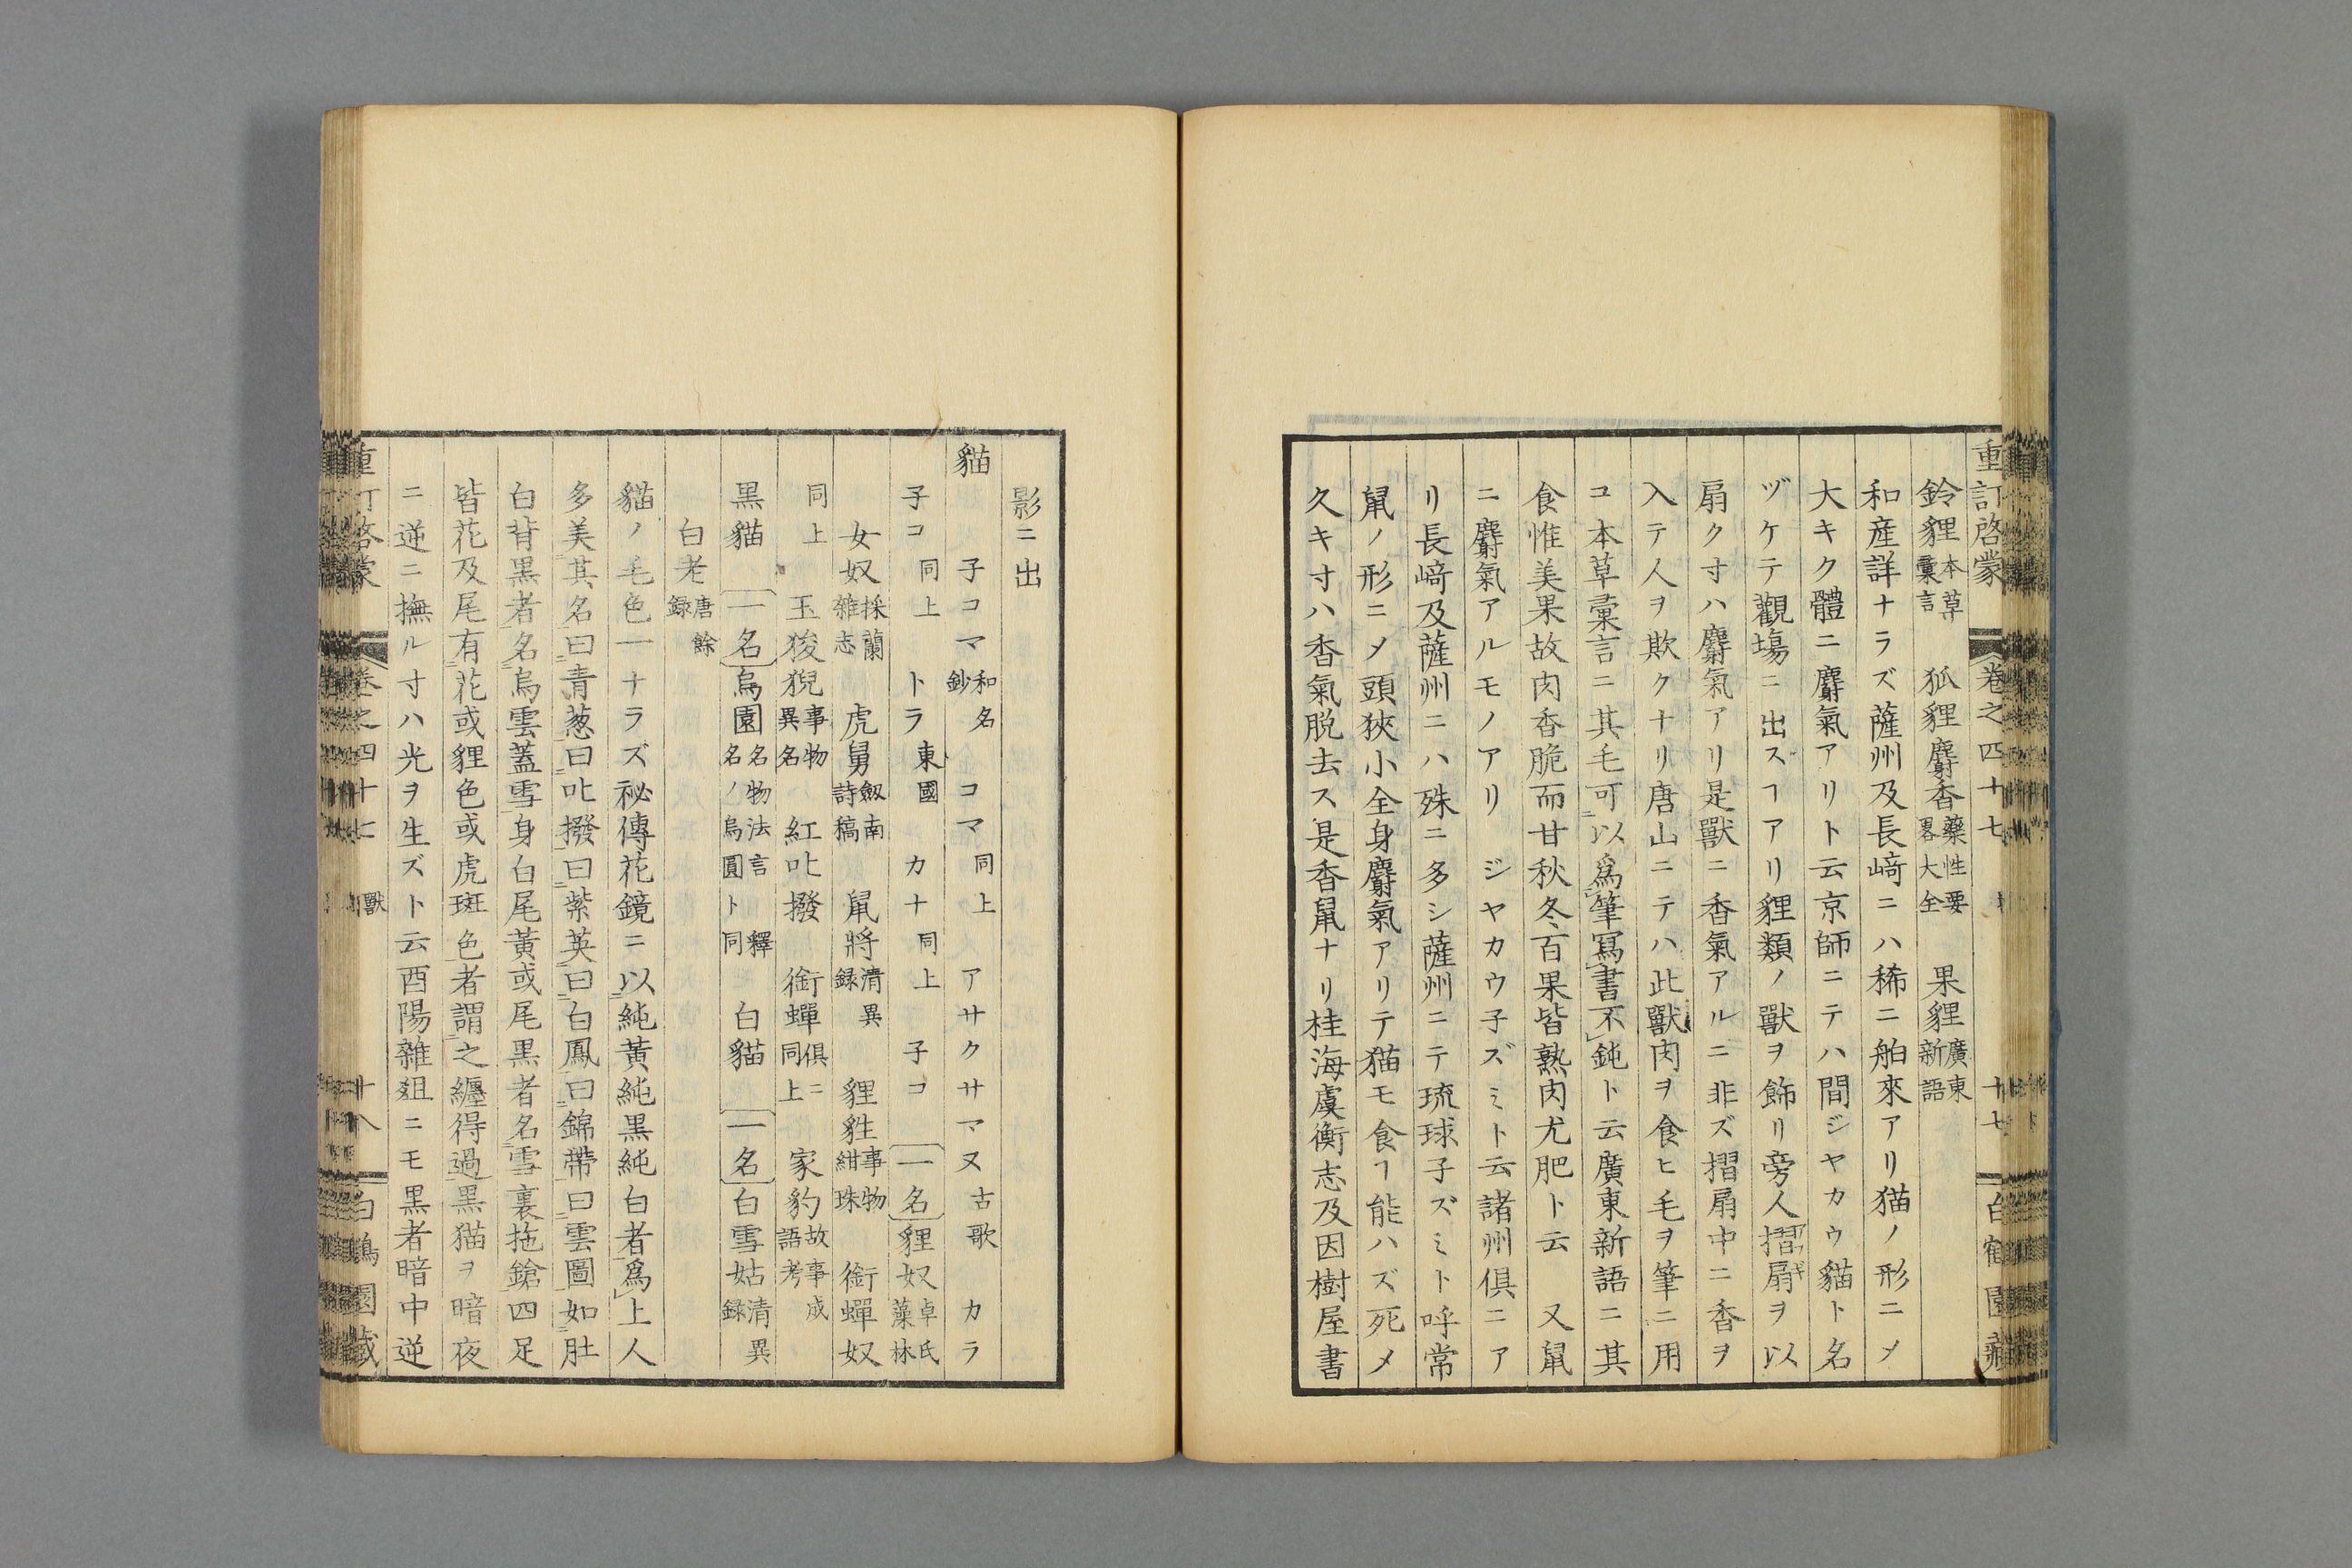 重訂啓蒙 卷之四十七 十七 白鶴園藏
鈴貍本草彙言 狐貍麝香藥性要畧大全 果貍廣東新語
和産詳ナラズ薩州及長﨑ニハ稀ニ舶來アリ猫ノ形ニメ
大キク體ニ麝氣アリト云京師ニテハ間ジヤカウ貓ト名
ヅケテ觀塲ニ出スヿアリ貍類ノ獸ヲ飾リ旁人摺扇ヲ以
扇クヰハ麝氣アリ是獸ニ香氣アルニ非ズ摺扇中ニ香ヲ
入テ人ヲ欺クナリ唐山ニテハ此獸肉ヲ食ヒ毛ヲ筆ニ用
ユ本草彙言ニ其毛可以爲筆冩書不鈍ト云廣東新語ニ其
食惟美果故肉香脆而甘秋冬百果皆熟肉尤肥ト云 又鼠
ニ麝氣アルモノアリ ジヤカウ子ズミト云諸州俱ニア
リ長﨑及薩州ニハ殊ニ多シ薩州ニテ琉球子ズミト呼常
鼠ノ形ニメ頭狹小全身麝氣アリテ猫モ食ヿ能ハズ死メ
久キ寸ハ香氣脱去ス是香鼠ナリ桂海虞衡志及因樹屋書
影ニ出
貓 子コマ和名鈔 コマ同上 アサクサマ又古歌 カラ
子コ同上 トラ東國 カナ同上 子コ 一名貍奴卓氏藻林
女奴採蘭雜志 虎舅劔南詩稿 鼠將清異録 貍甡事物紺珠 銜蟬奴
同上 玉狻猊事物異名 紅叱撥 銜蟬俱ニ同上 家豹故事成語考
黒貓 一名烏園名物法言釋名ノ烏圓ト同 白貓 一名白雪姑清異録
白老唐餘録
貓ノ毛色一ナラズ祕傳花鏡ニ以純黃純黒純白者爲上人
多美其名曰青葱曰叱撥曰紫英曰白鳳曰錦帶曰雲圖如肚
白背黒者名烏雲蓋雪身白尾黃或尾黒者名雪裏拖鎗四足
皆花及尾有花或貍色或虎斑色者謂之纏得過黒猫ヲ暗夜
ニ逆ニ撫ル寸ハ光ヲ生ズト云酉陽雜爼ニモ黒者暗中逆
重訂啓蒙 卷之四十七 獸 十八 白鶴園藏